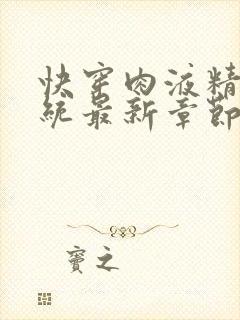 快穿肉液精
统最新章節
寶之